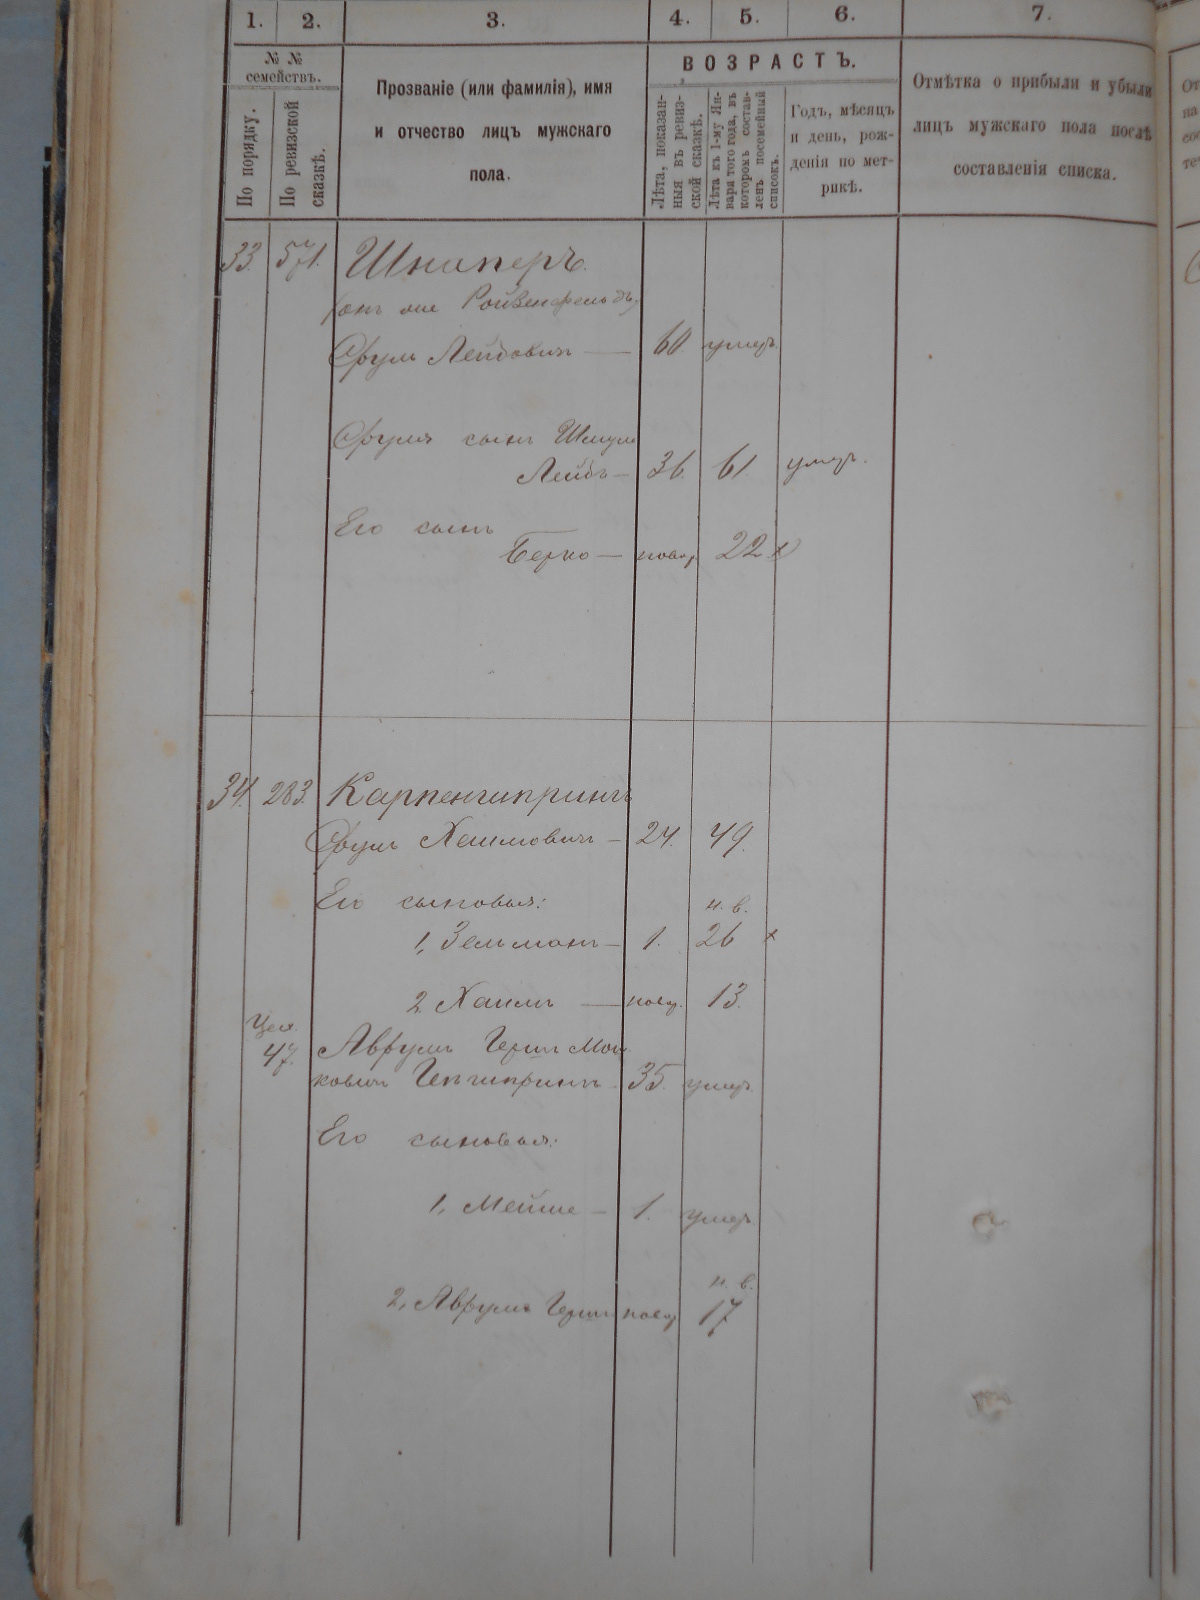 1. 2. 3. 4. 5. 6. 7.
№ №
семействъ.
По порядку.
По ревизской
сказкѣ.
Прозваніе (или фамилія), имя
и отчество лицъ мужскаго
пола.
ВОЗРАСТЪ.
Лѣта, показан-
ныя въ ревиз-
ской сказкѣ.
Лѣта къ 1-му Ян-
варя того года, въ
которомъ состав-
ленъ посемейный
списокъ.
Годъ, мѣсяцъ
и день, рож-
денія по мет-
рикѣ.
Отмѣтка о прибыли и убыли
лицъ мужскаго пола послѣ
составленія списка.
33. 571. Шнаперъ.
(онъ же
Сруль Лейбовичъ — 60. умеръ.
Сруля сынъ Шмуль
Лейбъ — 36. 61. умеръ.
Его сынъ
Берко — новор. 22 x
34. 283. Карпеншпринъ
Сруль Хаимовичъ — 24. 49.
Его сыновья: н. в.
1, Зельманъ — 1. 26 x
2. Хаимъ — новор. 13.
Цех.
47. Аврумъ Герш Мош
ковичъ 35. умеръ.
Его сыновья:
1, Мейше — 1. умеръ
н. в.
2, Аврумъ Герш новор 17